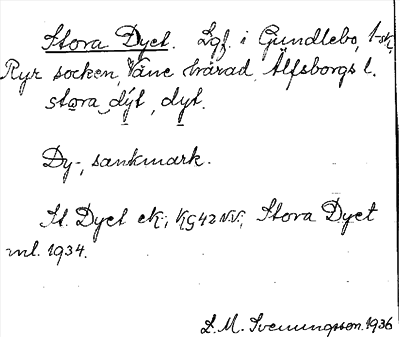 Stora Dyet. Lgf. i Gundlebo, 1-sk,
Ryr socken, Väne härad, Älfsborgs l.
stora dýt, dyt.
Dy-, sankmark.
St. Dyet ek; KG42NV; Stora Dyet
ml. 1934.
L. M. Svenungsson. 1936